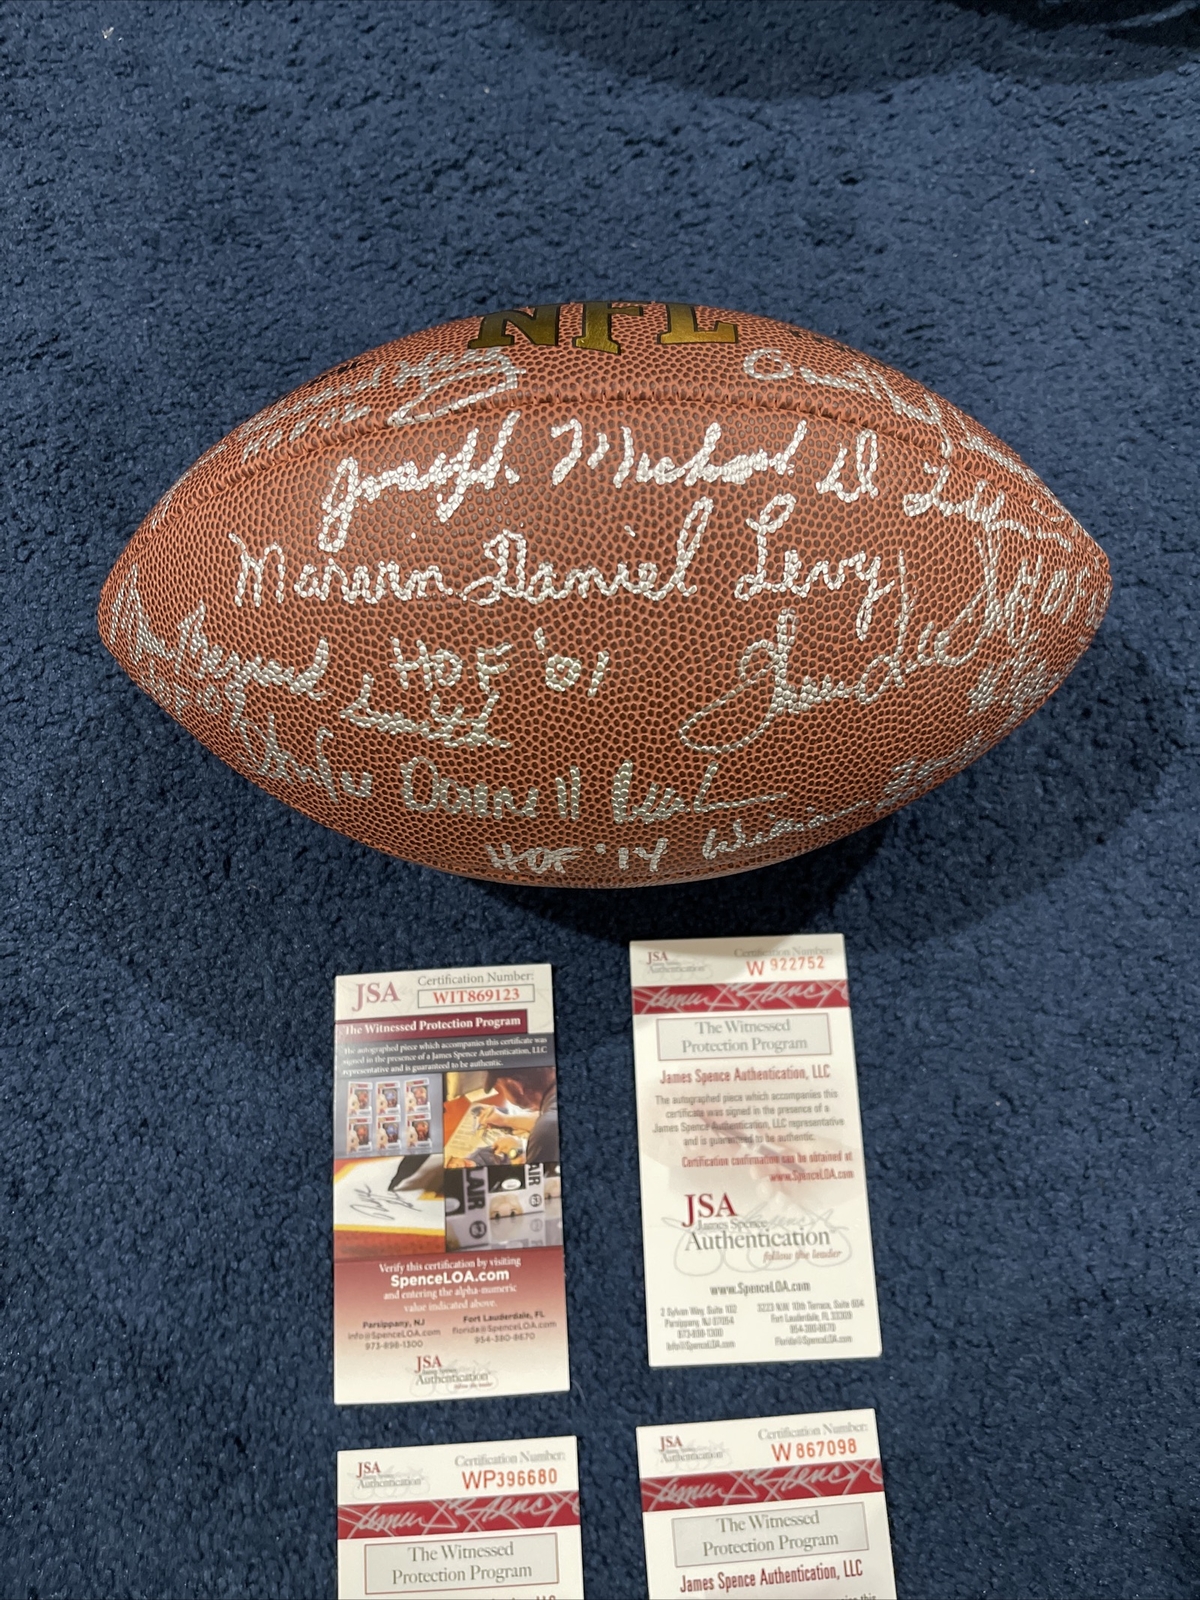 NFL
Joseph Michael D
Marvin Daniel Levy
HOF '01
HOF '14
JSA
Certification Number:
WIT869123
The Witnessed Protection Program
The autographed piece which accompanies this certificate was
signed in the presence of a James Spence Authentication, LLC
representative and is guaranteed to be authentic.
Verify this certification by visiting
SpenceLOA.com
and entering the alpha-numeric
value indicated above.
Parsippany, NJ
info@SpenceLOA.com
973-898-1300
Fort Lauderdale, FL
florida@SpenceLOA.com
954-380-8670
JSA
James Spence
Authentication
follow the leader
JSA
Authentication
Certification Number:
W 922752
The Witnessed
Protection Program
James Spence Authentication, LLC
The autographed piece which accompanies this
certificate was signed in the presence of a
James Spence Authentication, LLC representative
and is guaranteed to be authentic.
Certification confirmation can be obtained at
www.SpenceLOA.com
JSA
James Spence
Authentication
follow the leader
www.SpenceLOA.com
2 Sylvan Way, Suite 102
Parsippany, NJ 07054
973-898-1300
Info@SpenceLOA.com
3223 N.W. 10th Terrace, Suite 604
Fort Lauderdale, FL 33309
954-380-8670
Florida@SpenceLOA.com
JSA
Authentication
Certification Number:
WP396680
The Witnessed
Protection Program
JSA
Authentication
Certification Number:
W 867098
The Witnessed
Protection Program
James Spence Authentication, LLC